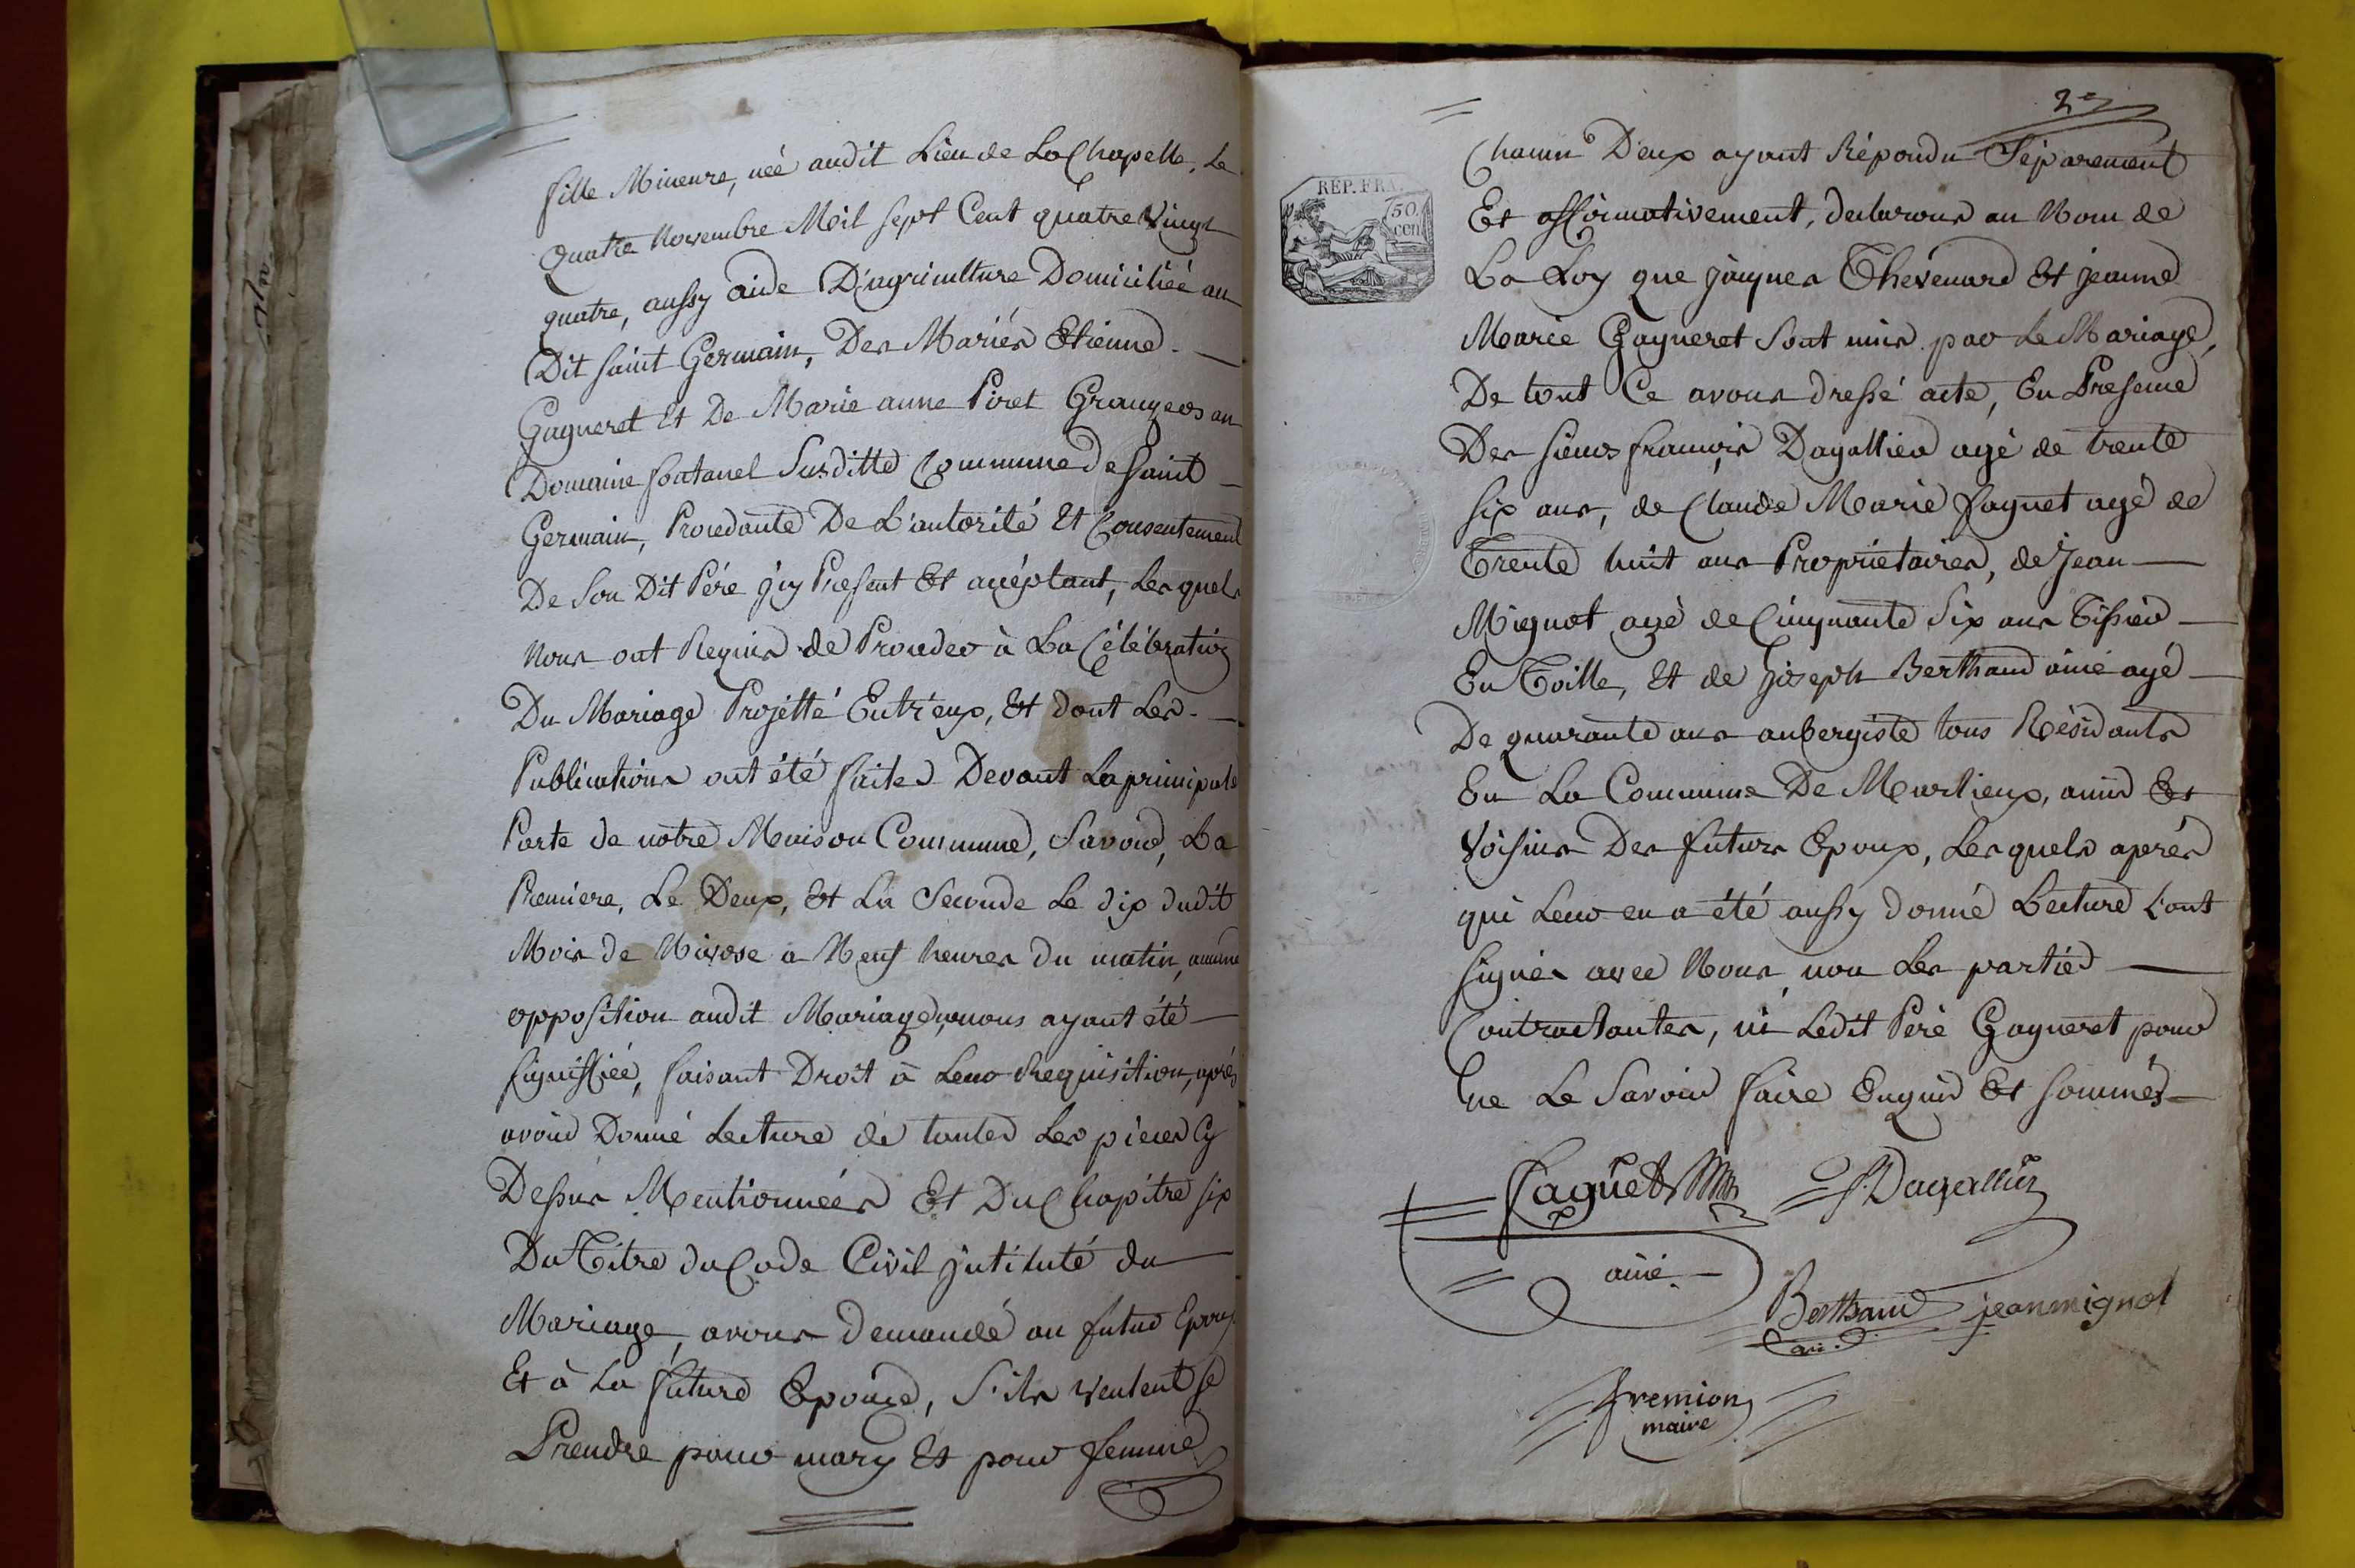 fille Mineure, née audit Lieu de La Chapelle, Le
Quatre Novembre Mil sept Cent quatre Vingt
quatre, aussy aide D'agriculture Domiciliée au
Dit saint Germain, Des Mariés Etienne
Gagneret Et De Marie anne Piret Grangers au
Domaine fontanel Susditte Commune de Saint
Germain, Procedante De L'autorité Et Consentement
De Son Dit Pére jcy Present Et acéptant, Lesquels
Nous ont Requis de Proceder à La Célébration
Du Mariage Projetté Entr'eux, Et dont Les
Publications ont été faites Devant La principale
Porte de notre Maison Commune, Savoir, La
Premiere, Le Deux, Et La Seconde Le dix dudit
Mois de Nivose a Neuf heures du matin, aucune
opposition audit Mariage, nous ayant été
signiffiée, faisant Droit à Leur Requisition, après
avoir Donné Lecture de toutes Les pieces Cy
Dessus Mentionnées Et Du Chapitre six
Du Titre du Code Civil jntitulé du
Mariage, avons Demandé au futur Epoux
Et à La future Epouze, S'ils veulent se
Prendre pour mary Et pour femme
2e
REP. FRA.
50. cen
Chacun D'eux ayant Répondu Séparement
Et affirmativement, declarons au Nom de
La Loy que jaques Thévenard Et jeanne
Marie Gagneret Sont unis par Le Mariage,
De tout Ce avons dressé acte, En Presence
Des sieurs francois Dagallier agé de trente
six ans, de Claude Marie faguet agé de
Trente huit ans Propriétaires, de Jean
Mignot agé de Cinquante Six ans Tissier
En Toille, Et de Joseph Berthaud ainé agé
De quarante ans aubergiste tous Résidants
En La Commune De Marlieux, amis Et
Voisins Des futurs Epoux, Lesquels aprés
qui Leur en a été aussy donné Lecture L'ont
signés avec Nous, non Les parties
Contractantes, ni Ledit Pére Gagneret pour
Ne Le Savoir faire Enquis Et sommés
faguet f. Dagallier
ainé
Berthaud jean mignot
ainé
fremion
maire